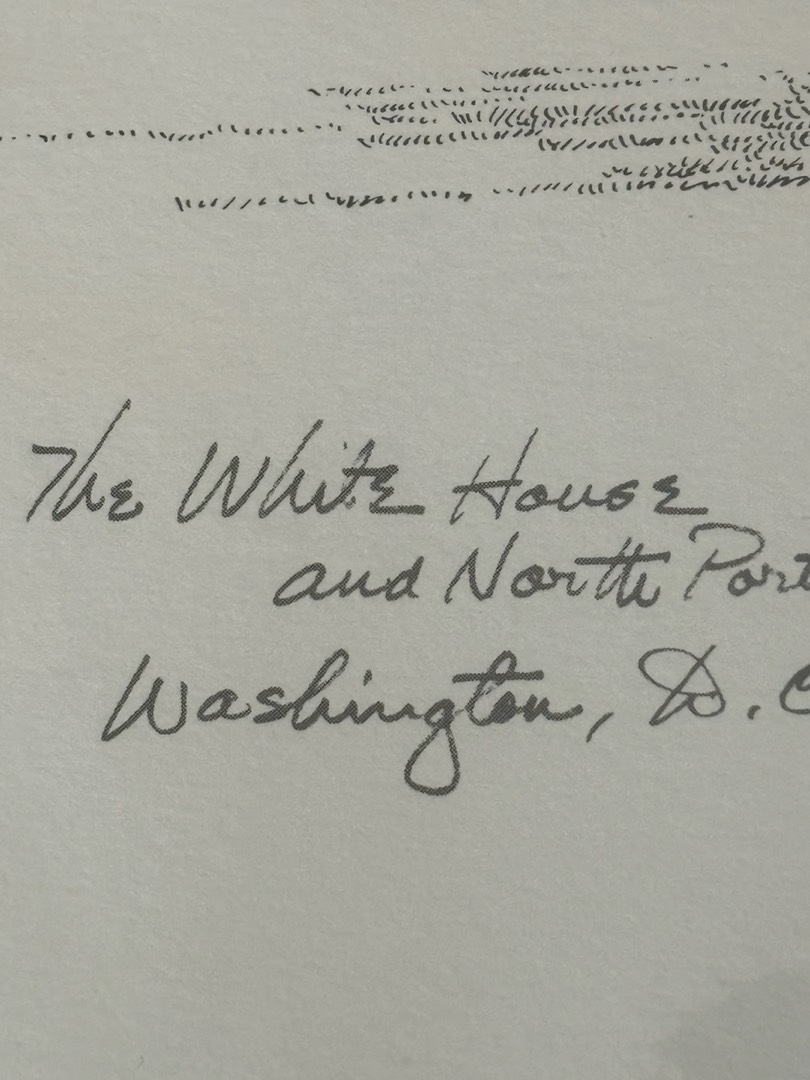 The White House
and North Port
Washington, D.C